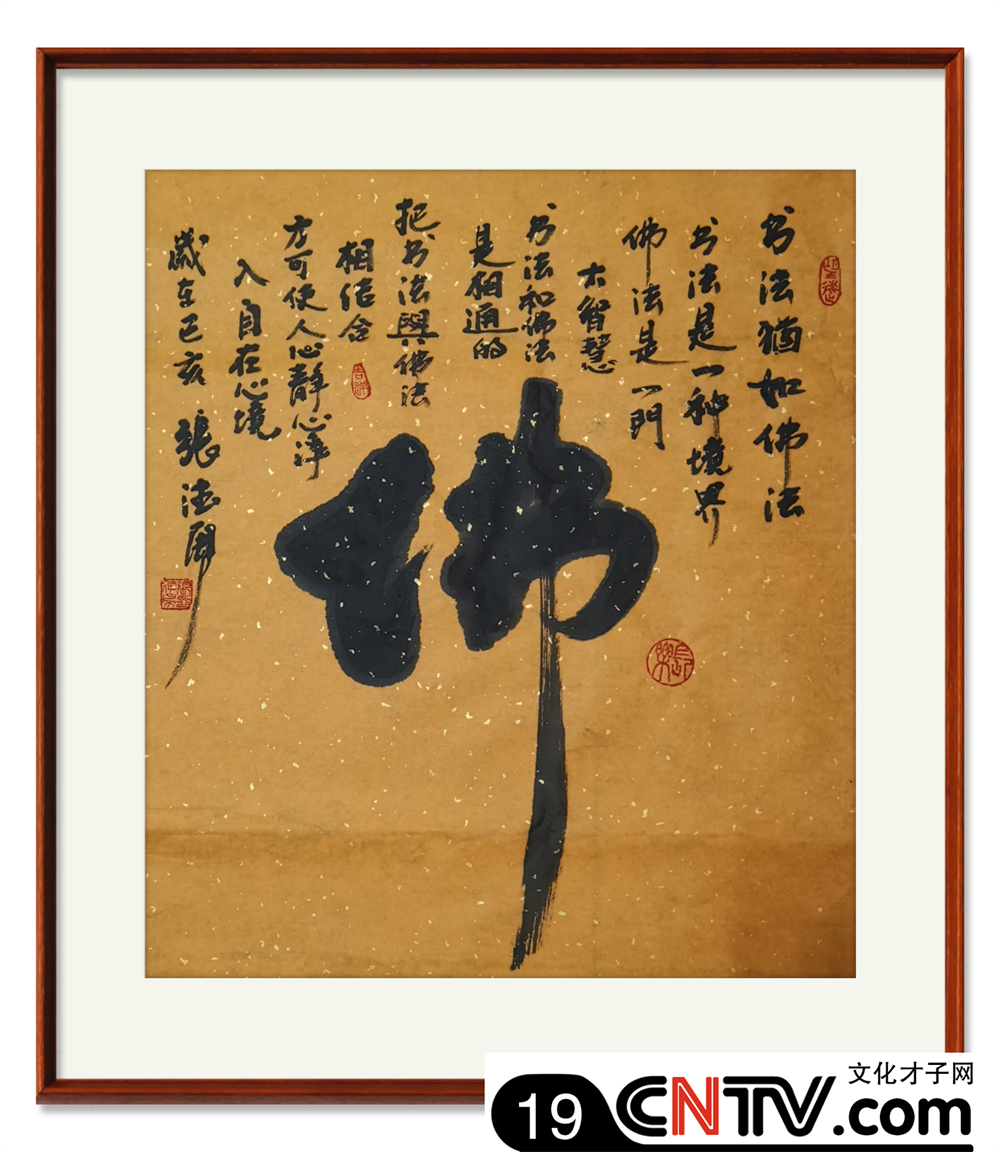 书法猶如佛法
书法是一种境界
佛法是一門
大智慧
书法和佛法
是相通的
把书法與佛法
相结合
方可使人心静心净
入自在心境
歲在己亥 張法
佛
吉祥
長樂
文化才子网
19 CNTV.com